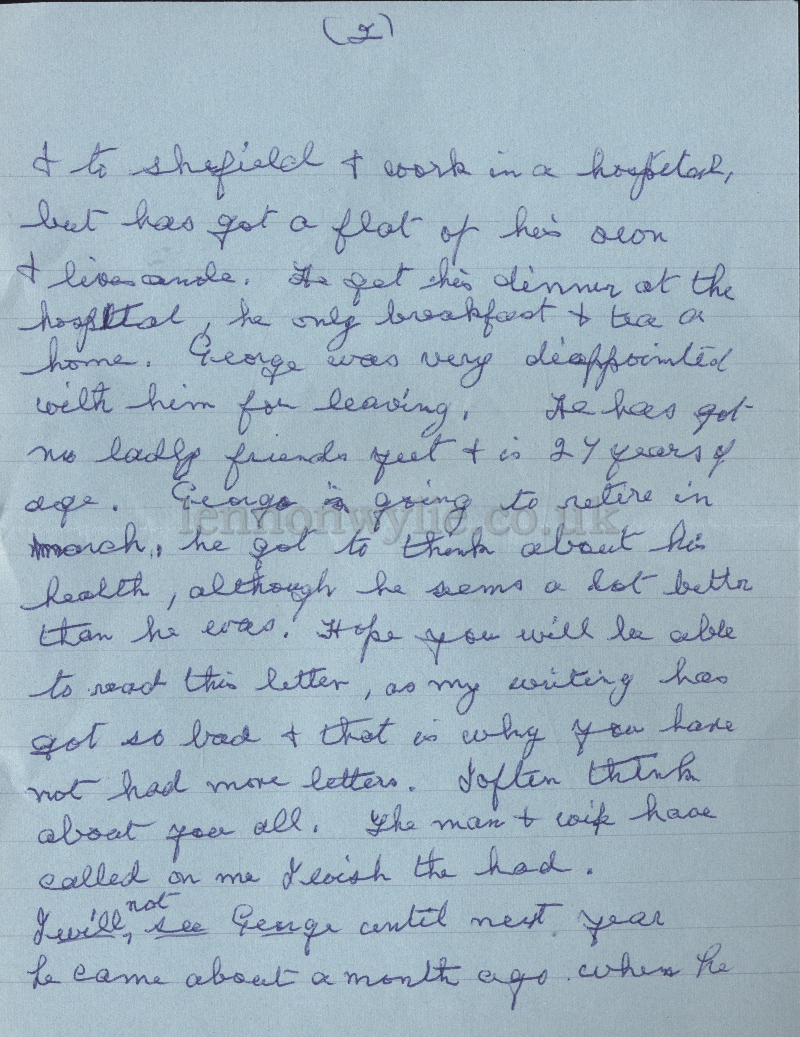 (2)
& to shefield & work in a hospital,
but has got a flat of his own
& lives . He get his dinner at the
hospital, he only breakfast & tea a
home. George was very disappointed
with him for leaving. He has got
no lady friends yet & is 27 years of
age. George is going to retire in
lennonwylie.co.uk
march, he got to think about his
health, although he seems a lot better
than he was. Hope you will be able
to read this letter, as my writing has
got so bad & that is why you have
not had more letters. I often think
about you all. The man & wife have
called on me I wish the had.
I will, not see George until next year
he came about a month ago when he